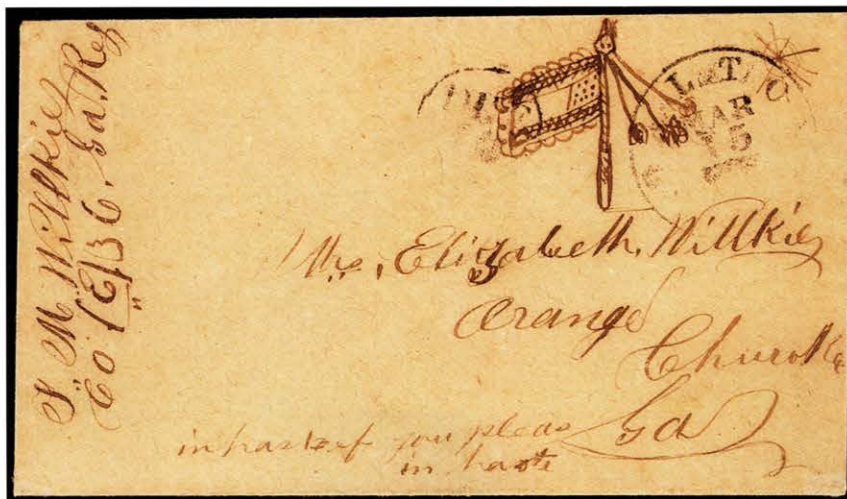 S. M. Willkie
Co (E) 36. Ga. Reg
MAR
15
Mrs, Elizabeth, Willkie
Orange
Churoke
Ga
in hast if you pleas
in haste